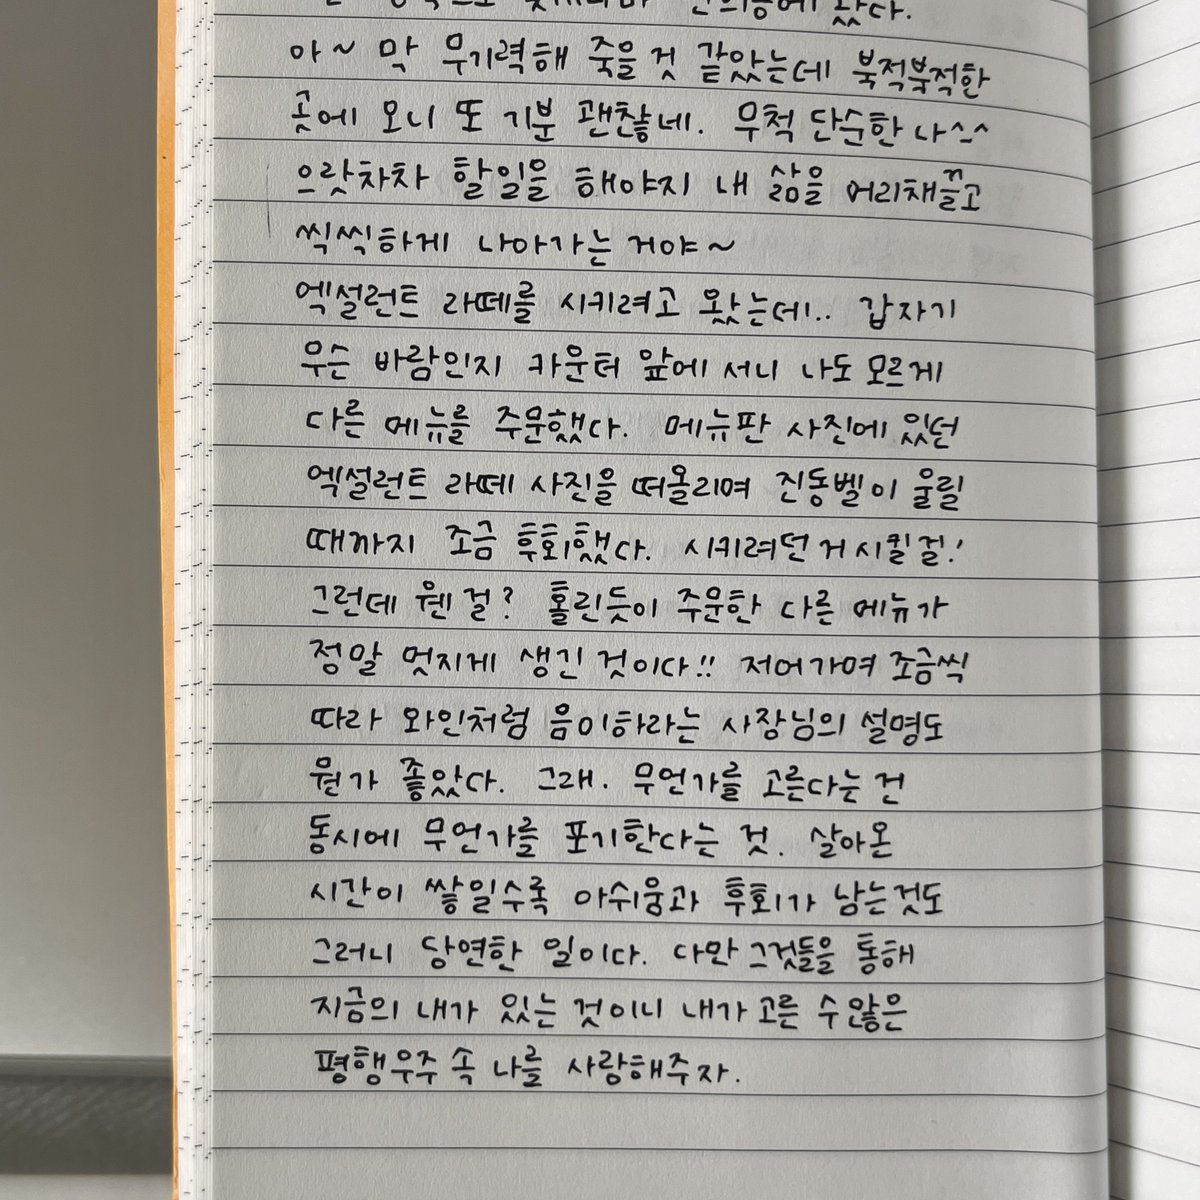 왔다.
아~ 막 무기력해 죽을 것 같았는데 북적북적한
곳에 오니 또 기분 괜찮네. 무척 단순한 나^-^
으랏차차 할일을 해야지 내 삶을 머리채들고
씩씩하게 나아가는 거야~
엑설런트 라떼를 시키려고 왔는데.. 갑자기
무슨 바람인지 카운터 앞에 서니 나도 모르게
다른 메뉴를 주문했다. 메뉴판 사진에 있던
엑설런트 라떼 사진을 떠올리며 진동벨이 울릴
때까지 조금 후회했다. 시키려던 거 시킬걸!
그런데 웬 걸? 홀린듯이 주문한 다른 메뉴가
정말 멋지게 생긴 것이다!! 저어가며 조금씩
따라 와인처럼 음미하라는 사장님의 설명도
뭔가 좋았다. 그래. 무언가를 고른다는 건
동시에 무언가를 포기한다는 것. 살아온
시간이 쌓일수록 아쉬움과 후회가 남는것도
그러니 당연한 일이다. 다만 그것들을 통해
지금의 내가 있는 것이니 내가 고른 수많은
평행우주 속 나를 사랑해주자.